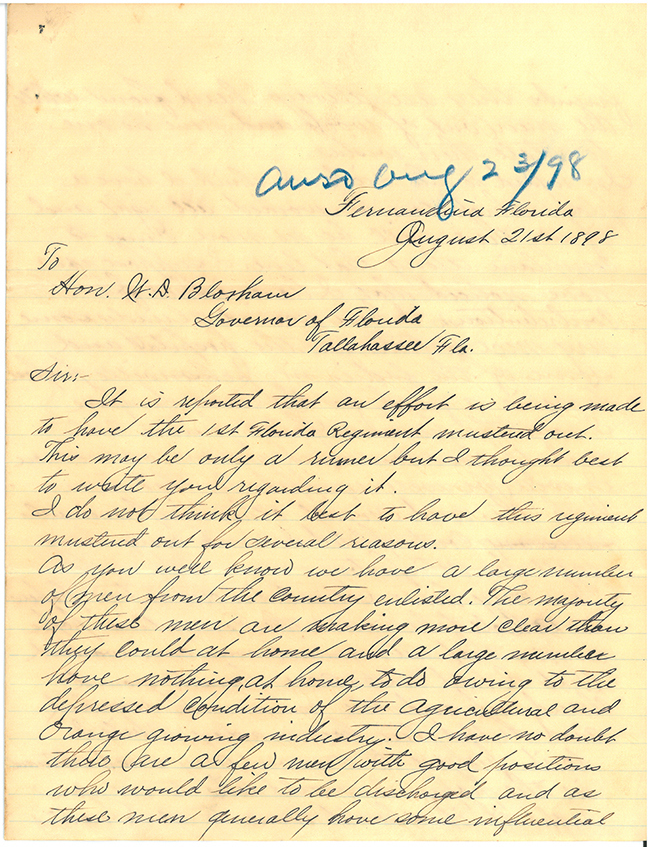 ansd Aug 23/98
Fernandina Florida
August 21st 1898
To
Hon. W. D. Bloxham
Governor of Florida
Tallahassee Fla.
Sir:-
It is reported that an effort is being made
to have the 1st Florida Regiment mustered out.
This may be only a rumer but I thought best
to write you regarding it.
I do not think it best to have this regiment
mustered out for several reasons.
As you well know we have a large number
of men from the country enlisted. The majority
of these men are making more clear than
they could at home and a large number
have nothing, at home, to do owing to the
depressed condition of the agricultural and
orange growing industry. I have no doubt
there are a few men with good positions
who would like to be discharged and as
these men generally have some influential